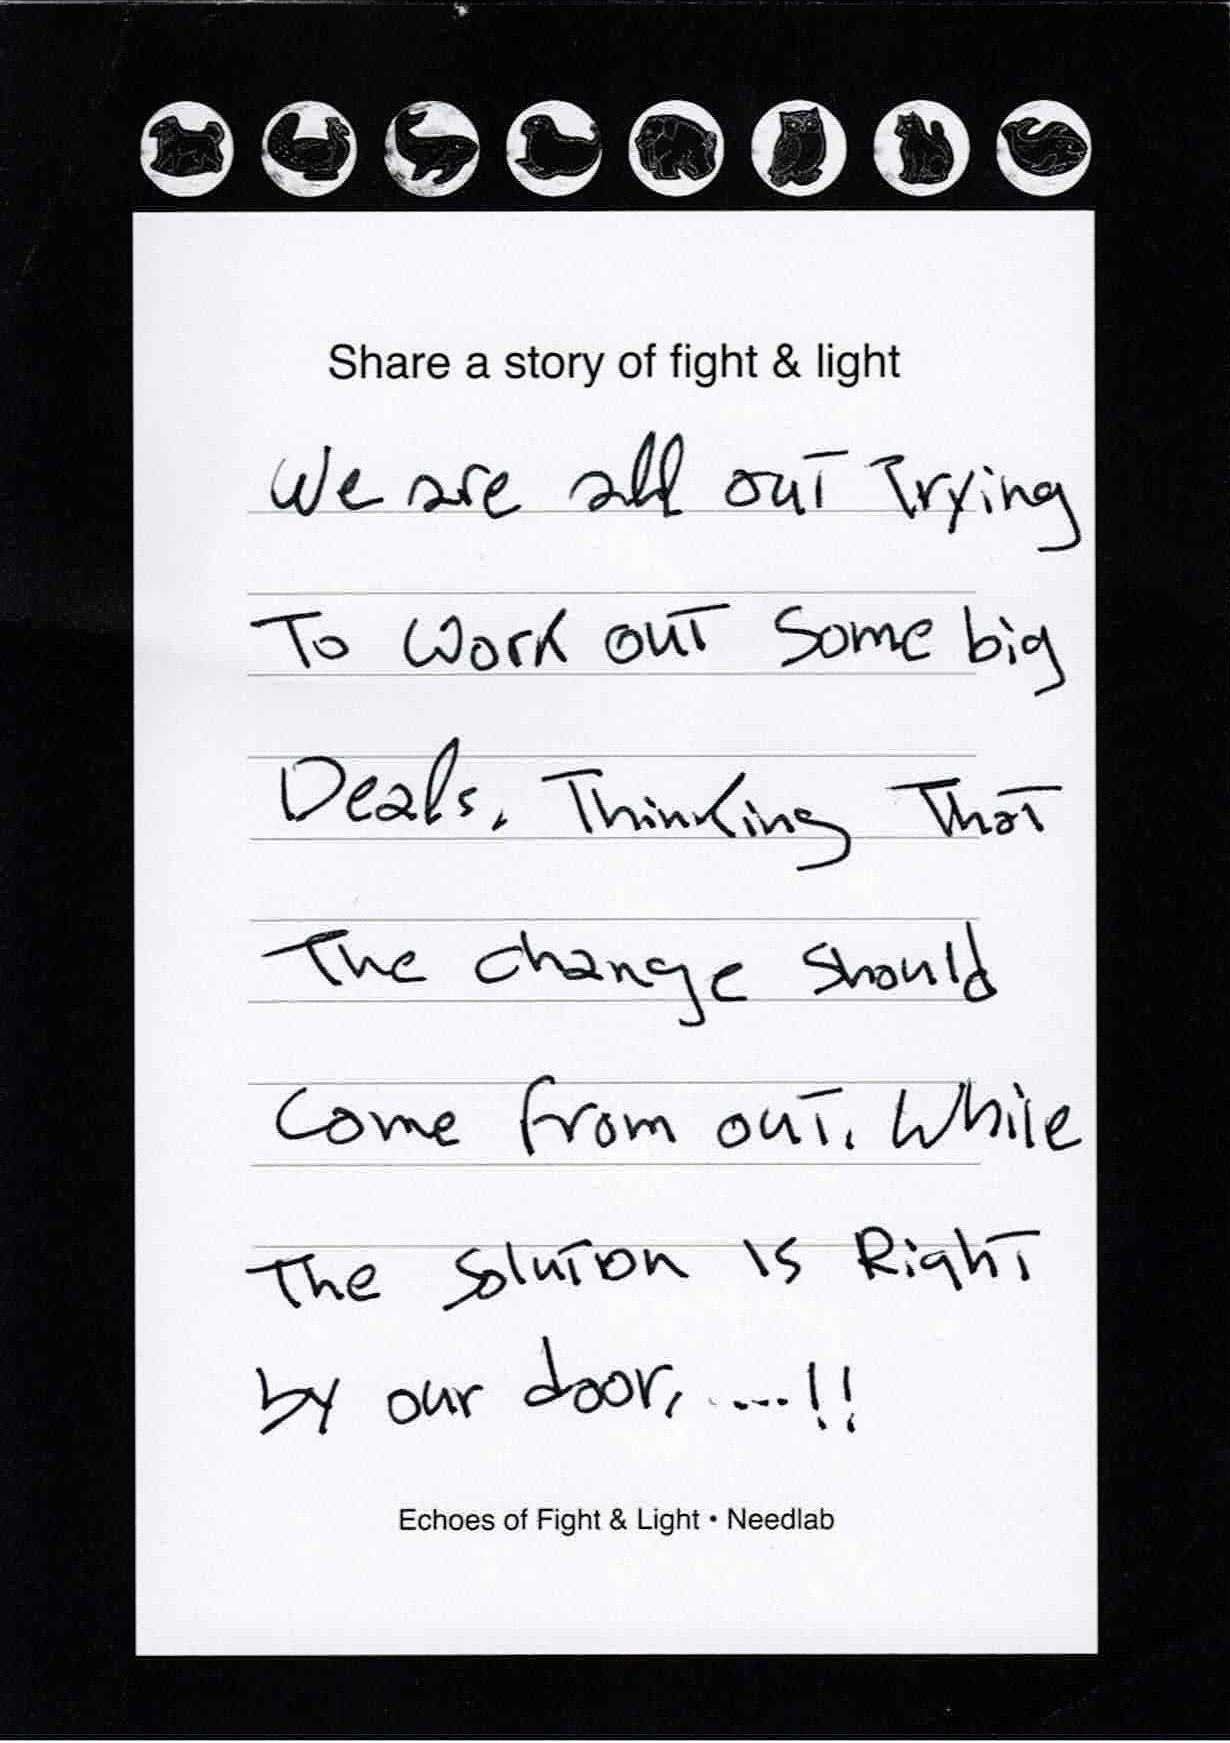 Share a story of fight & light
We are all out Trying
To work out Some big
Deals. Thinking That
The change should
Come from out. While
The Soluton is Right
by our door, ....!!
Echoes of Fight & Light • Needlab